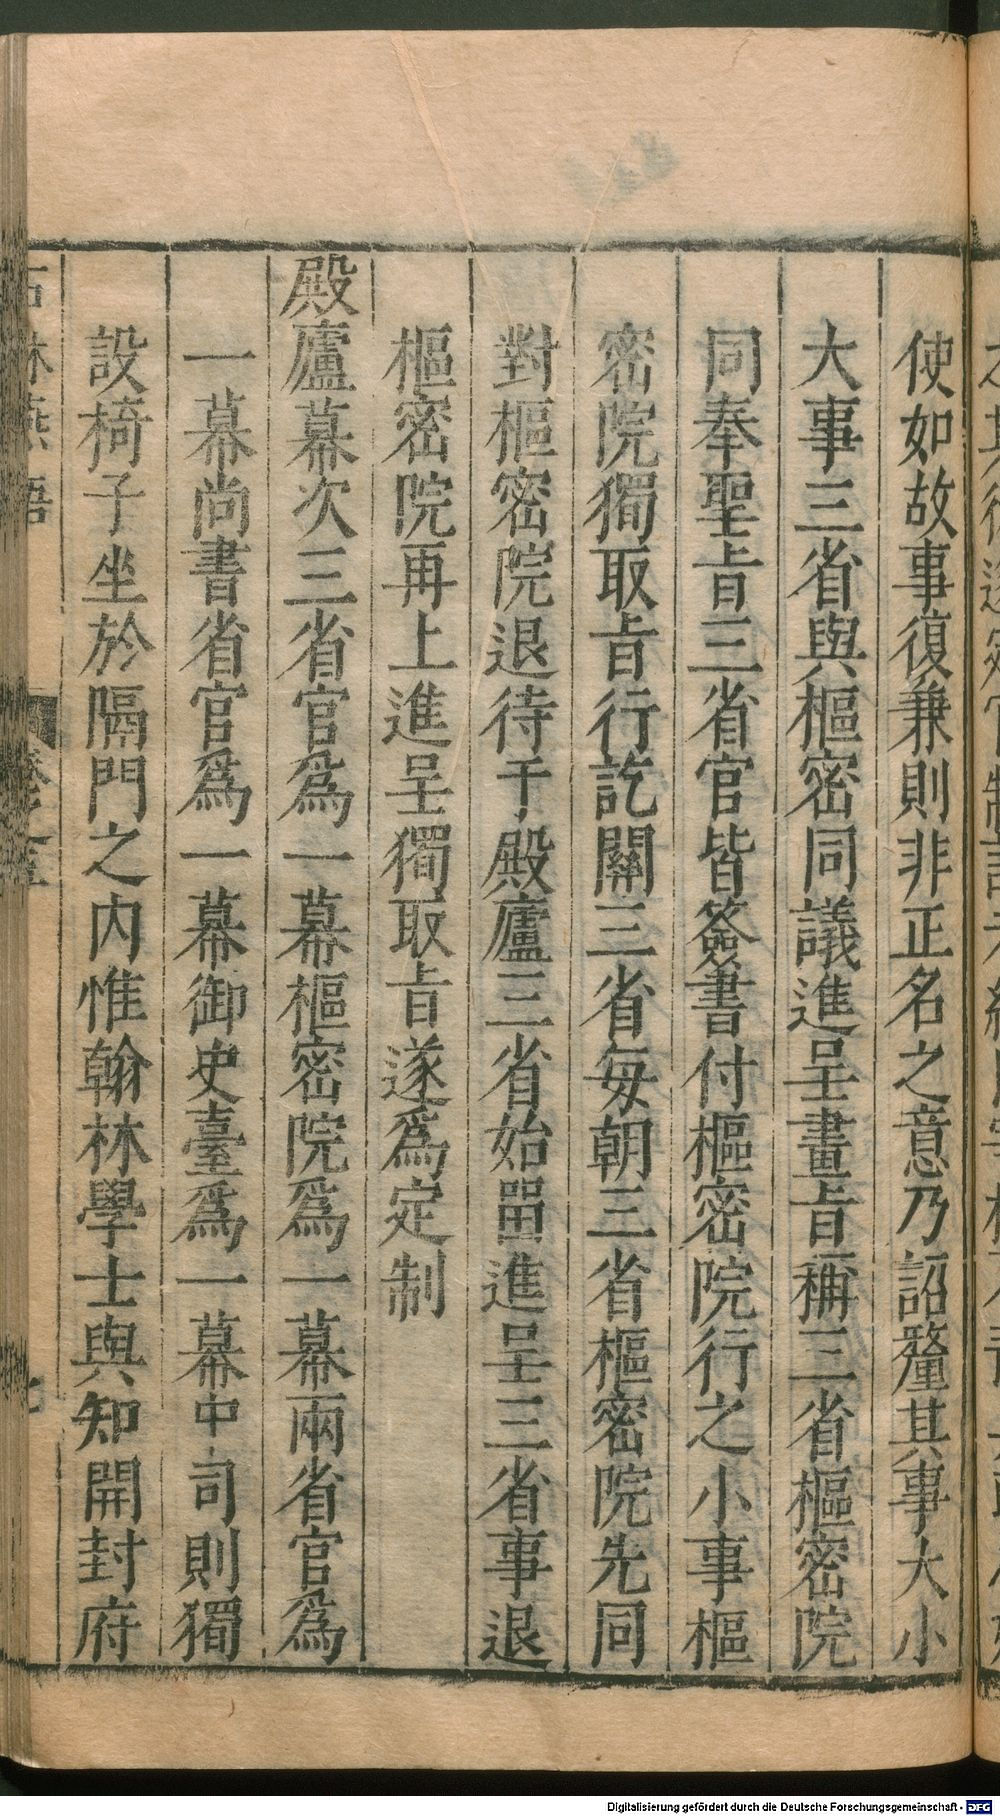 使如故事復兼則非正名之意乃詔釐其事大小
大事三省與樞密同議進呈畫㫖稱三省樞密院
同奉聖㫖三省官皆簽書付樞密院行之小事樞
密院獨取㫖行訖關三省每朝三省樞密院先同
對樞密院退待于殿廬三省始畱進呈三省事退
樞密院再上進呈獨取㫖遂爲定制
殿廬幕次三省官爲一幕樞密院爲一幕兩省官爲
一幕尚書省官爲一幕御史臺爲一幕中司則獨
設椅子坐於隔門之内惟翰林學士與知開封府
石林燕語
Digitalisierung gefördert durch die Deutsche Forschungsgemeinschaft - DFG